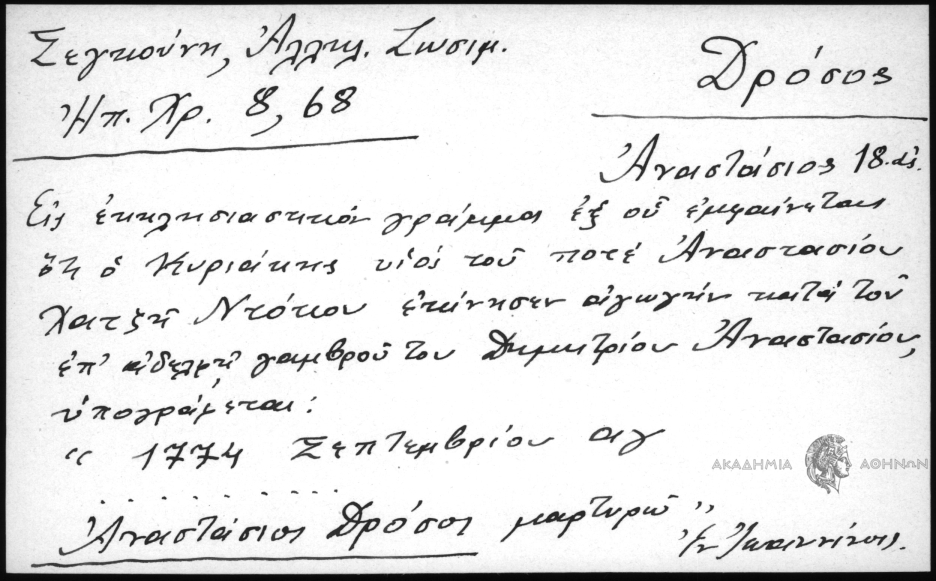 Σεγκούνη, Ἀλληλ. Ζωσιμ.
Ἠπ. Χρ. 8, 68
Δρόσος
Ἀναστάσιος 18. αἰ.
Εἰς ἐκκλησιαστικόν γράμμα ἐξ οὗ ἐμφαίνεται
ὅτι ὁ Κυριάκης υἱός τοῦ ποτέ Ἀναστασίου
Χατζῆ Ντόκου ἐκίνησεν ἀγωγήν κατά τοῦ
ἐπ' ἀδελφῇ γαμβροῦ του Δημητρίου Ἀναστασίου,
ὑπογράφεται:
“ 1774 Σεπτεμβρίου αγ
ΑΚΑΔΗΜΙΑ ΑΘΗΝΩΝ
. . . . . . . . . . .
Ἀναστάσιος Δρόσος μαρτυρῶ ”
Ἐν Ἰωαννίνοις.